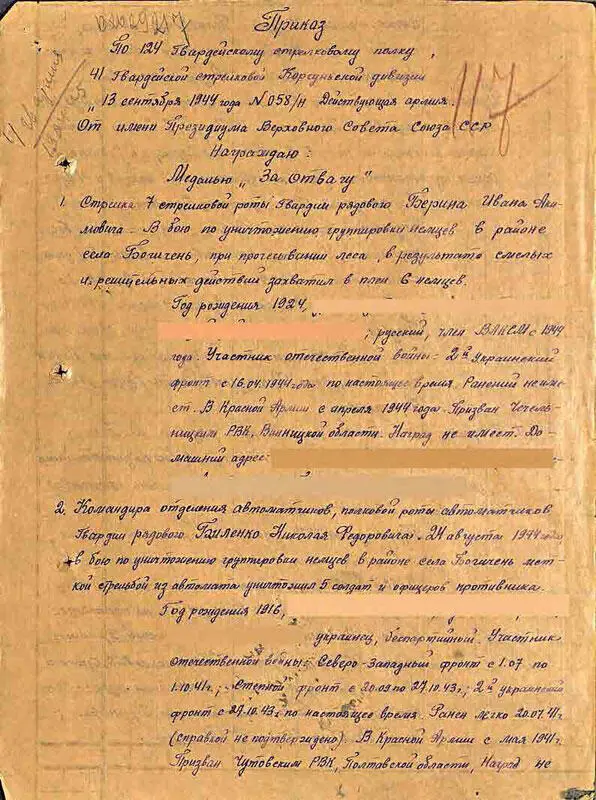 Приказ
117
По 124 Гвардейскому стрелковому полку,
41 Гвардейской стрелковой Корсуньской дивизии
„13 сентября 1944 года N058/н Действующая армия.
От имени Президиума Верховного Совета Союза ССР
Награждаю:
Медалью „За отвагу"
1. Стрелка 7 стрелковой роты Гвардии рядового Берина Ивана Аки-
мовича. В бою по уничтожению группировки немцев в районе
села Богичень, при прочесывании леса, в результате смелых
и решительных действий захватил в плен 6 немцев.
Год рождения 1924,
, русский, член ВЛКСМ с 1944
года. Участник отечественной войны: 2й Украинский
фронт с 16.04.1944 года по настоящее время. Ранений не име-
ет. В Красной Армии с апреля 1944 года. Призван Чечель-
ницким РВК, Винницкой области. Наград не имеет. До-
машний адрес:
2. Командира отделения автоматчиков, полковой роты автоматчиков
Гвардии рядового Биленко Николая Федоровича. 24 августа 1944 года
в бою по уничтожению группировки немцев в районе села Богичень мет-
кой стрельбой из автомата уничтожил 5 солдат и офицеров противника.
Год рождения 1916,
украинец, беспартийный. Участник
отечественной войны: Северо-Западный фронт с 1.07 по
1.10.41г.; Степной фронт с 20.09 по 27.10.43г; 2й украинский
фронт с 27.10.43г. по настоящее время. Ранен легко 20.07.41г
(справкой не подтверждено). В Красной Армии с мая 1941г.
Призван Чутовским РВК, Полтавской области, Наград не